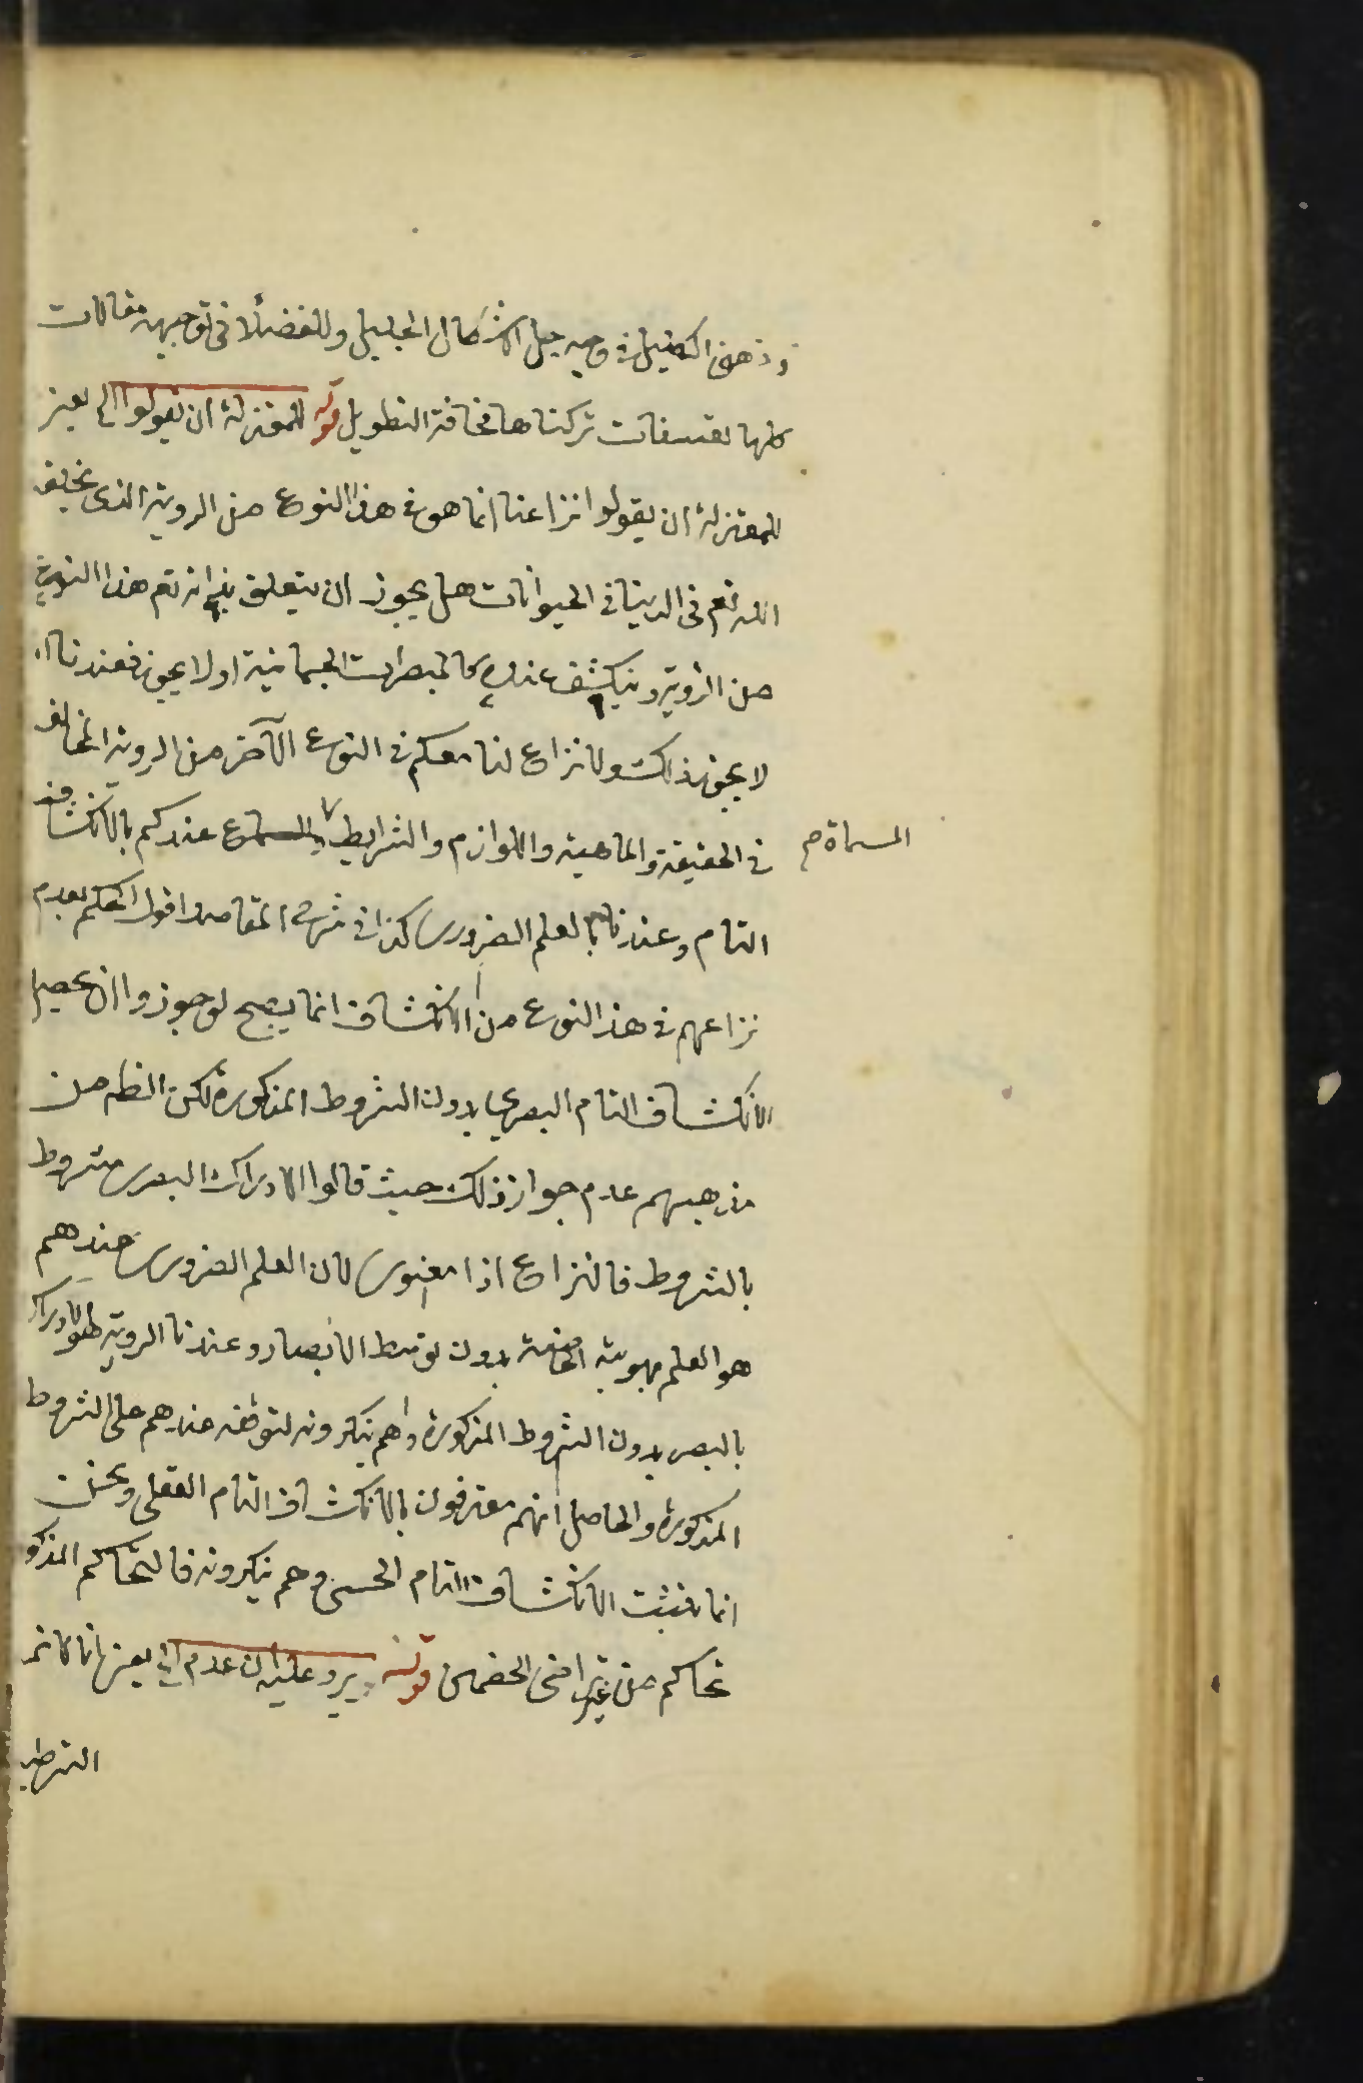 وذهني الكليل في وجيه حل الاشكال الجليل وللفضلا في توجيهه مقالات
كلها تعسفات تركناها مخافة التطويل قوله للمعتزلة ان يقولوا الخ يعني
للمعتزلة ان يقولوا نزاعنا انما هو في هذا النوع من الروية الذى يخلقه
الله تعم في الدنيا في الحيوانات هل يجوز ان يتعلق بذاته تعم هذا النوع
من الروية وينكشف عنده كالمبصرات الجسمانية اولا يجوز فعندنا
لا يجوز ذلك ولا نزاع لنا معكم في النوع الآخر من الروية المخالف
في الحقيقة والماهية واللوازم والشرايط عندكم بالانكشاف
المسماة م
التام وعندنا بالعلم الضرورى كذا في شرح المقاصد اقول الحكم بعدم
نزاعهم في هذا النوع من الانكشاف انما يصح لو جوزوا ان يحصل
الانكشاف التام البصري بدون الشروط المذكورة لكن الظه من
مذهبهم عدم جواز ذلك حيث قالوا الادراك البصرى مشروط
بالشروط فالنزاع اذا معنوى لان العلم الضرورى عندهم
هو العلم بهويته الخاصة بدون توسط الابصار وعندنا الروية هو الادراك
بالبصر بدون الشروط المذكورة وهم ينكرونه لتوقفه عندهم على الشروط
المذكورة والحاصل انهم معترفون بالانكشاف التام العقلى ونحن
انما نثبت الانكشاف التام الحسى وهم ينكرونه فالتحاكم المذكو
تحاكم من غير تراضى الخصمين قوله ويرد عليه ان عدم الخ يعنى انا لانم
الشرطية